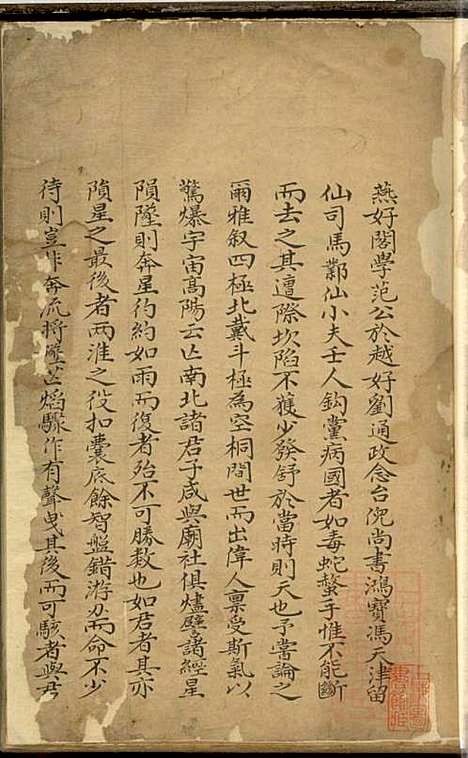 燕好閣學范公於越好劉通政念台倪尚書鴻寶馮天津留
仙司馬鄴仙小夫士人鈎黨病國者如毒蛇螫手惟不能斷
而去之其遭際坎陷不獲少發舒於當時則天也予嘗論之
爾雅叙四極北戴斗極為空桐間世而出偉人禀受斯氣以
驚爆宇宙高陽云亡南北諸君子咸與廟社俱燼譬諸經星
隕墜則奔星彴約如雨而復者殆不可勝數也如君者其亦
隕星之最後者兩淮之役扣囊底餘智盤錯游刃而命不少
待則豈非奔流將墜芒焰騄作有聲曳其後而可駭者與君